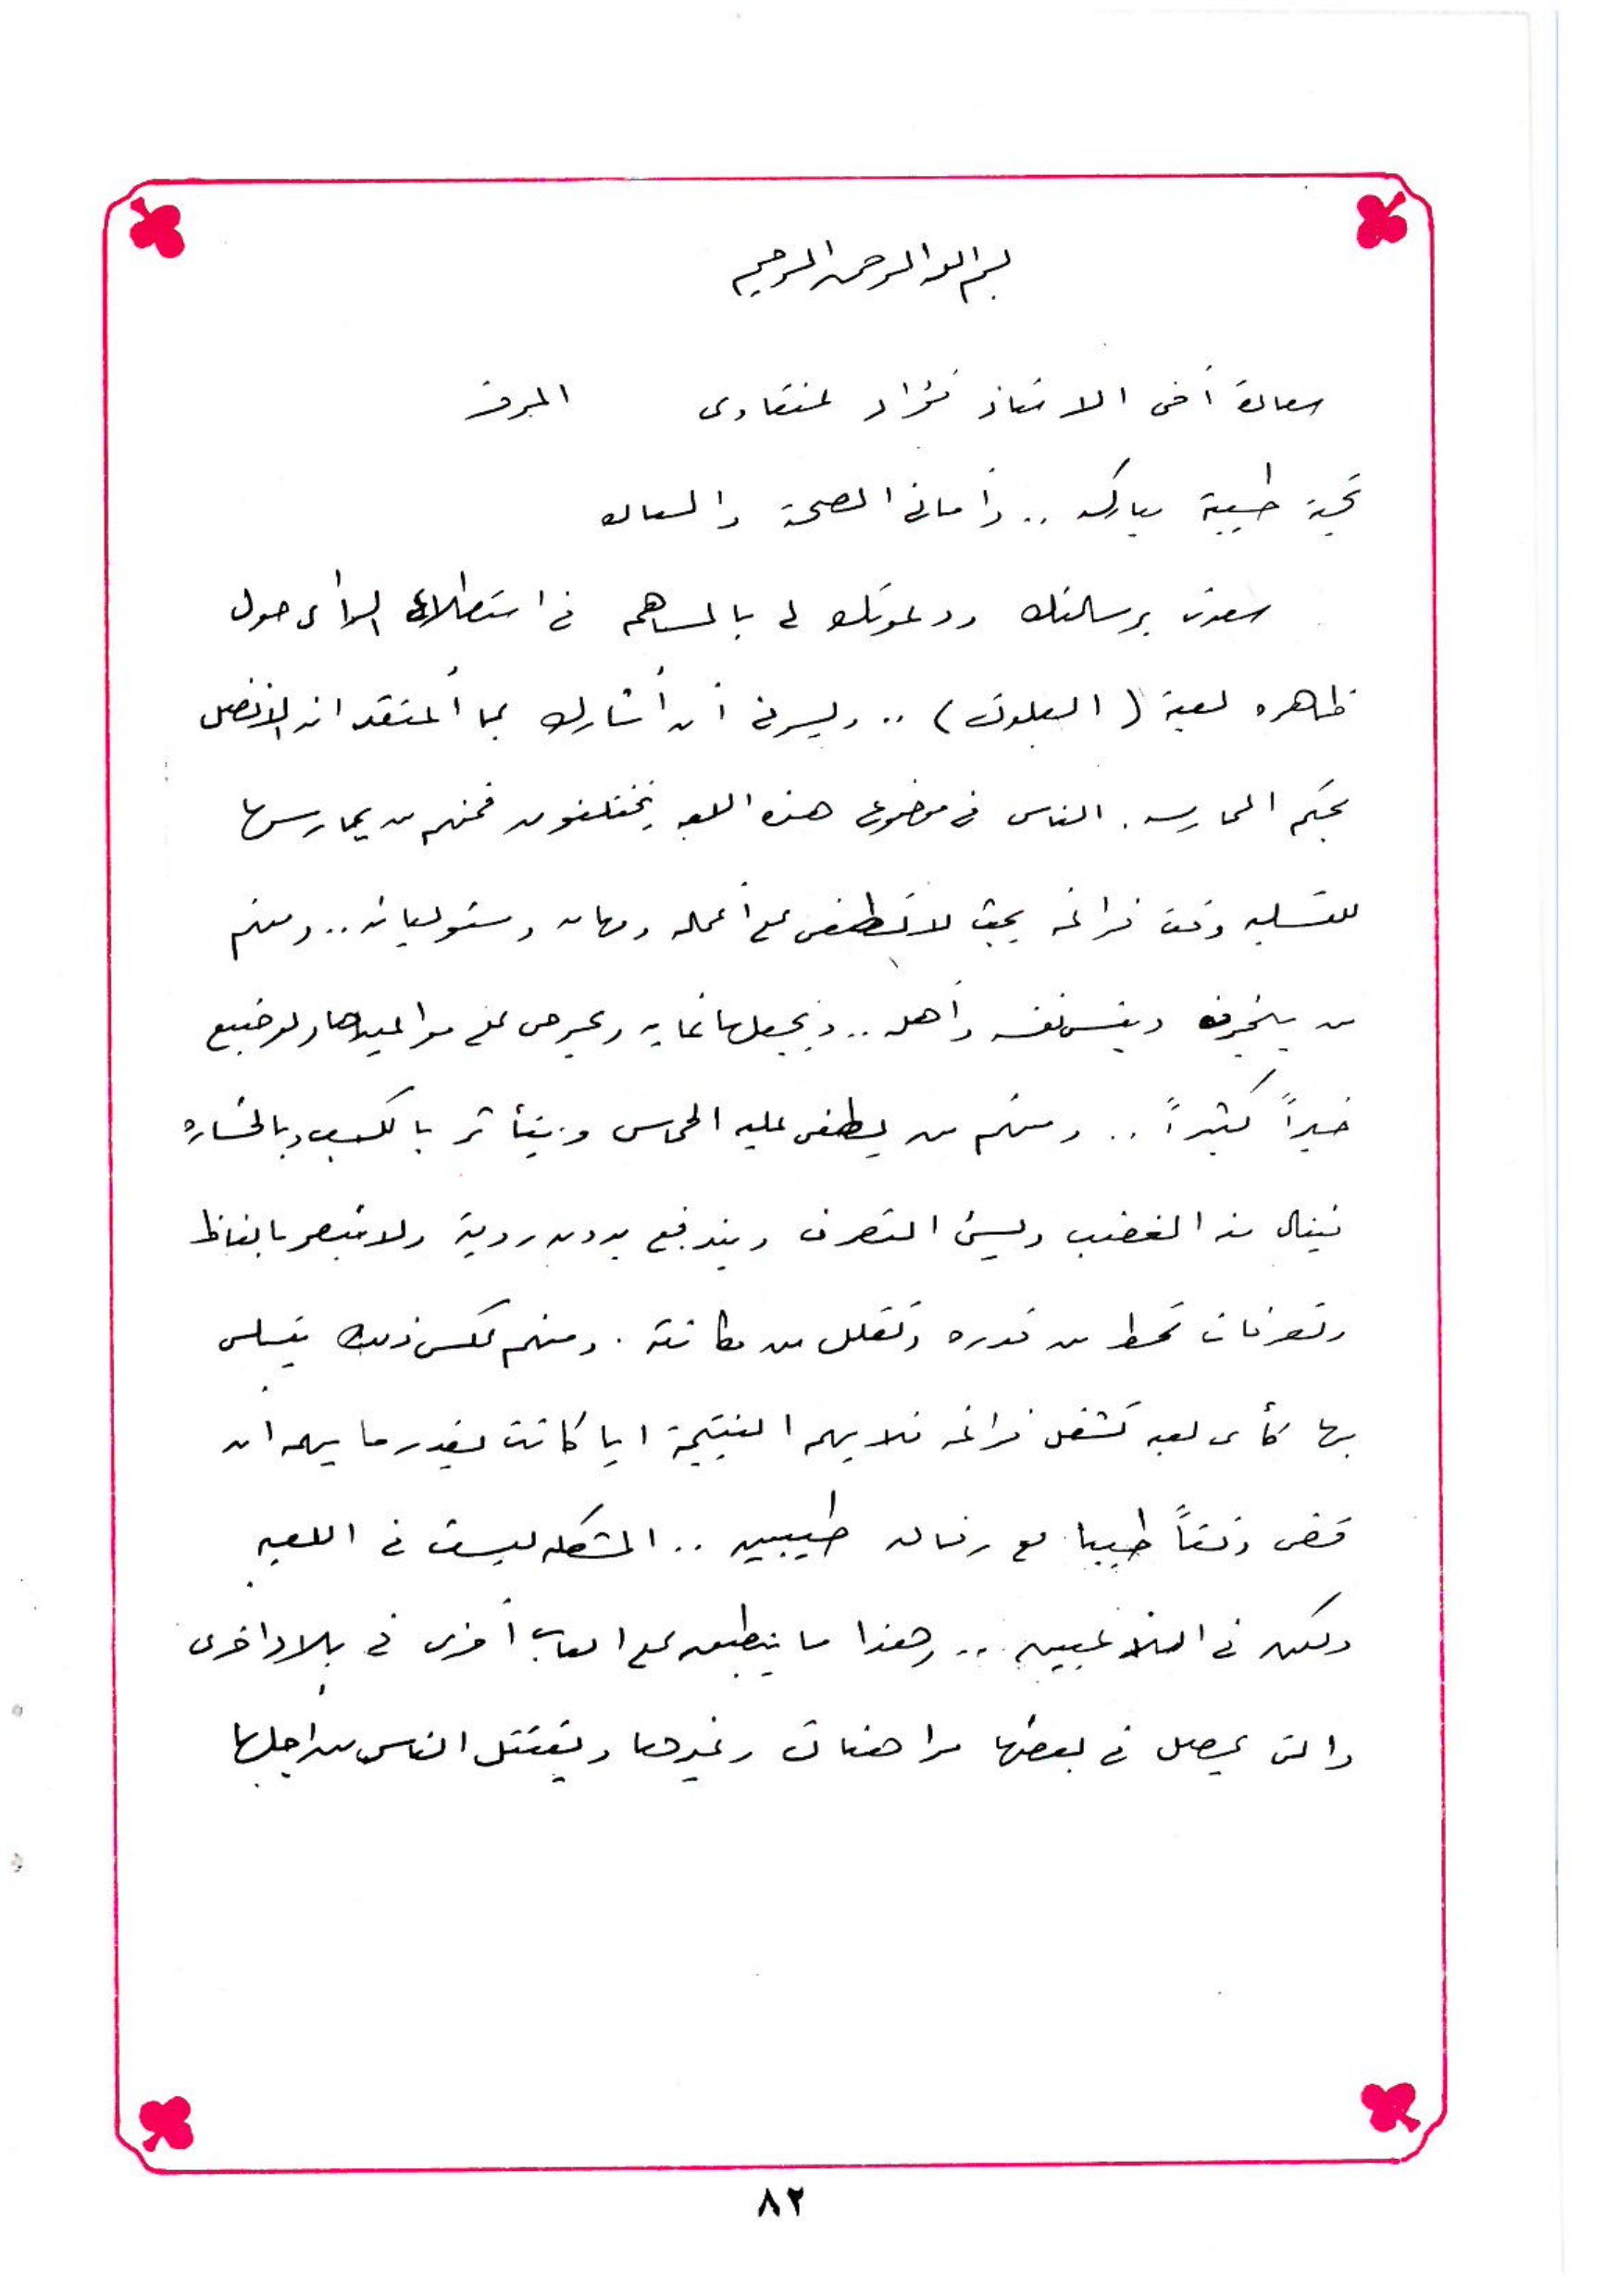 بسم الله الرحمن الرحيم
سعادة أخى الاستاذ فؤاد عنقاوى الموقر
تحية طيبة مباركه .. وأمانى الصحة والسعاده
سعدت برسالتك ودعوتك لى بالمساهمه فى استطلاع الرأى حول
ظاهره لعبة (البلوت) .. ويسرنى أن أشارك بما أعتقد انه الافضل
بحكم الممارسه. الناس فى موضوع هذه اللعبه يختلفون فمنهم من يمارسها
للتسليه وقت فراغه بحيث لا تطغى على أعماله ومهامه ومسئولياته .. ومنهم
من ينجرف وينسى نفسه وأهله .. ويجعلها غايه ويحرص على مواعيدها ولو ضيع
خيراً كثيراً .. ومنهم من يطغى عليه الحماس ويتأثر بالكسب وبالخساره
فينال منه الغضب ويسئ التصرف ويندفع بدون روية ولا تبصر بالفاظ
وتصرفات تحط من قدره وتقلل من مكانته . ومنهم عكس ذلك يتسلى
بها كأى لعبه تشغل فراغه فلا يهمه النتيجة ايا كانت بقدر ما يهمه انه
قضى وقتاً طيبا مع رفاق طيبين .. المشكله ليست فى اللعبه
ولكن فى اللاعبين .. وهذا ما ينطبق على العاب أخرى فى بلاد اخرى
والتى يحصل فى بعضها مراهنات وغيرها ويقتتل الناس من اجلها
٨٢